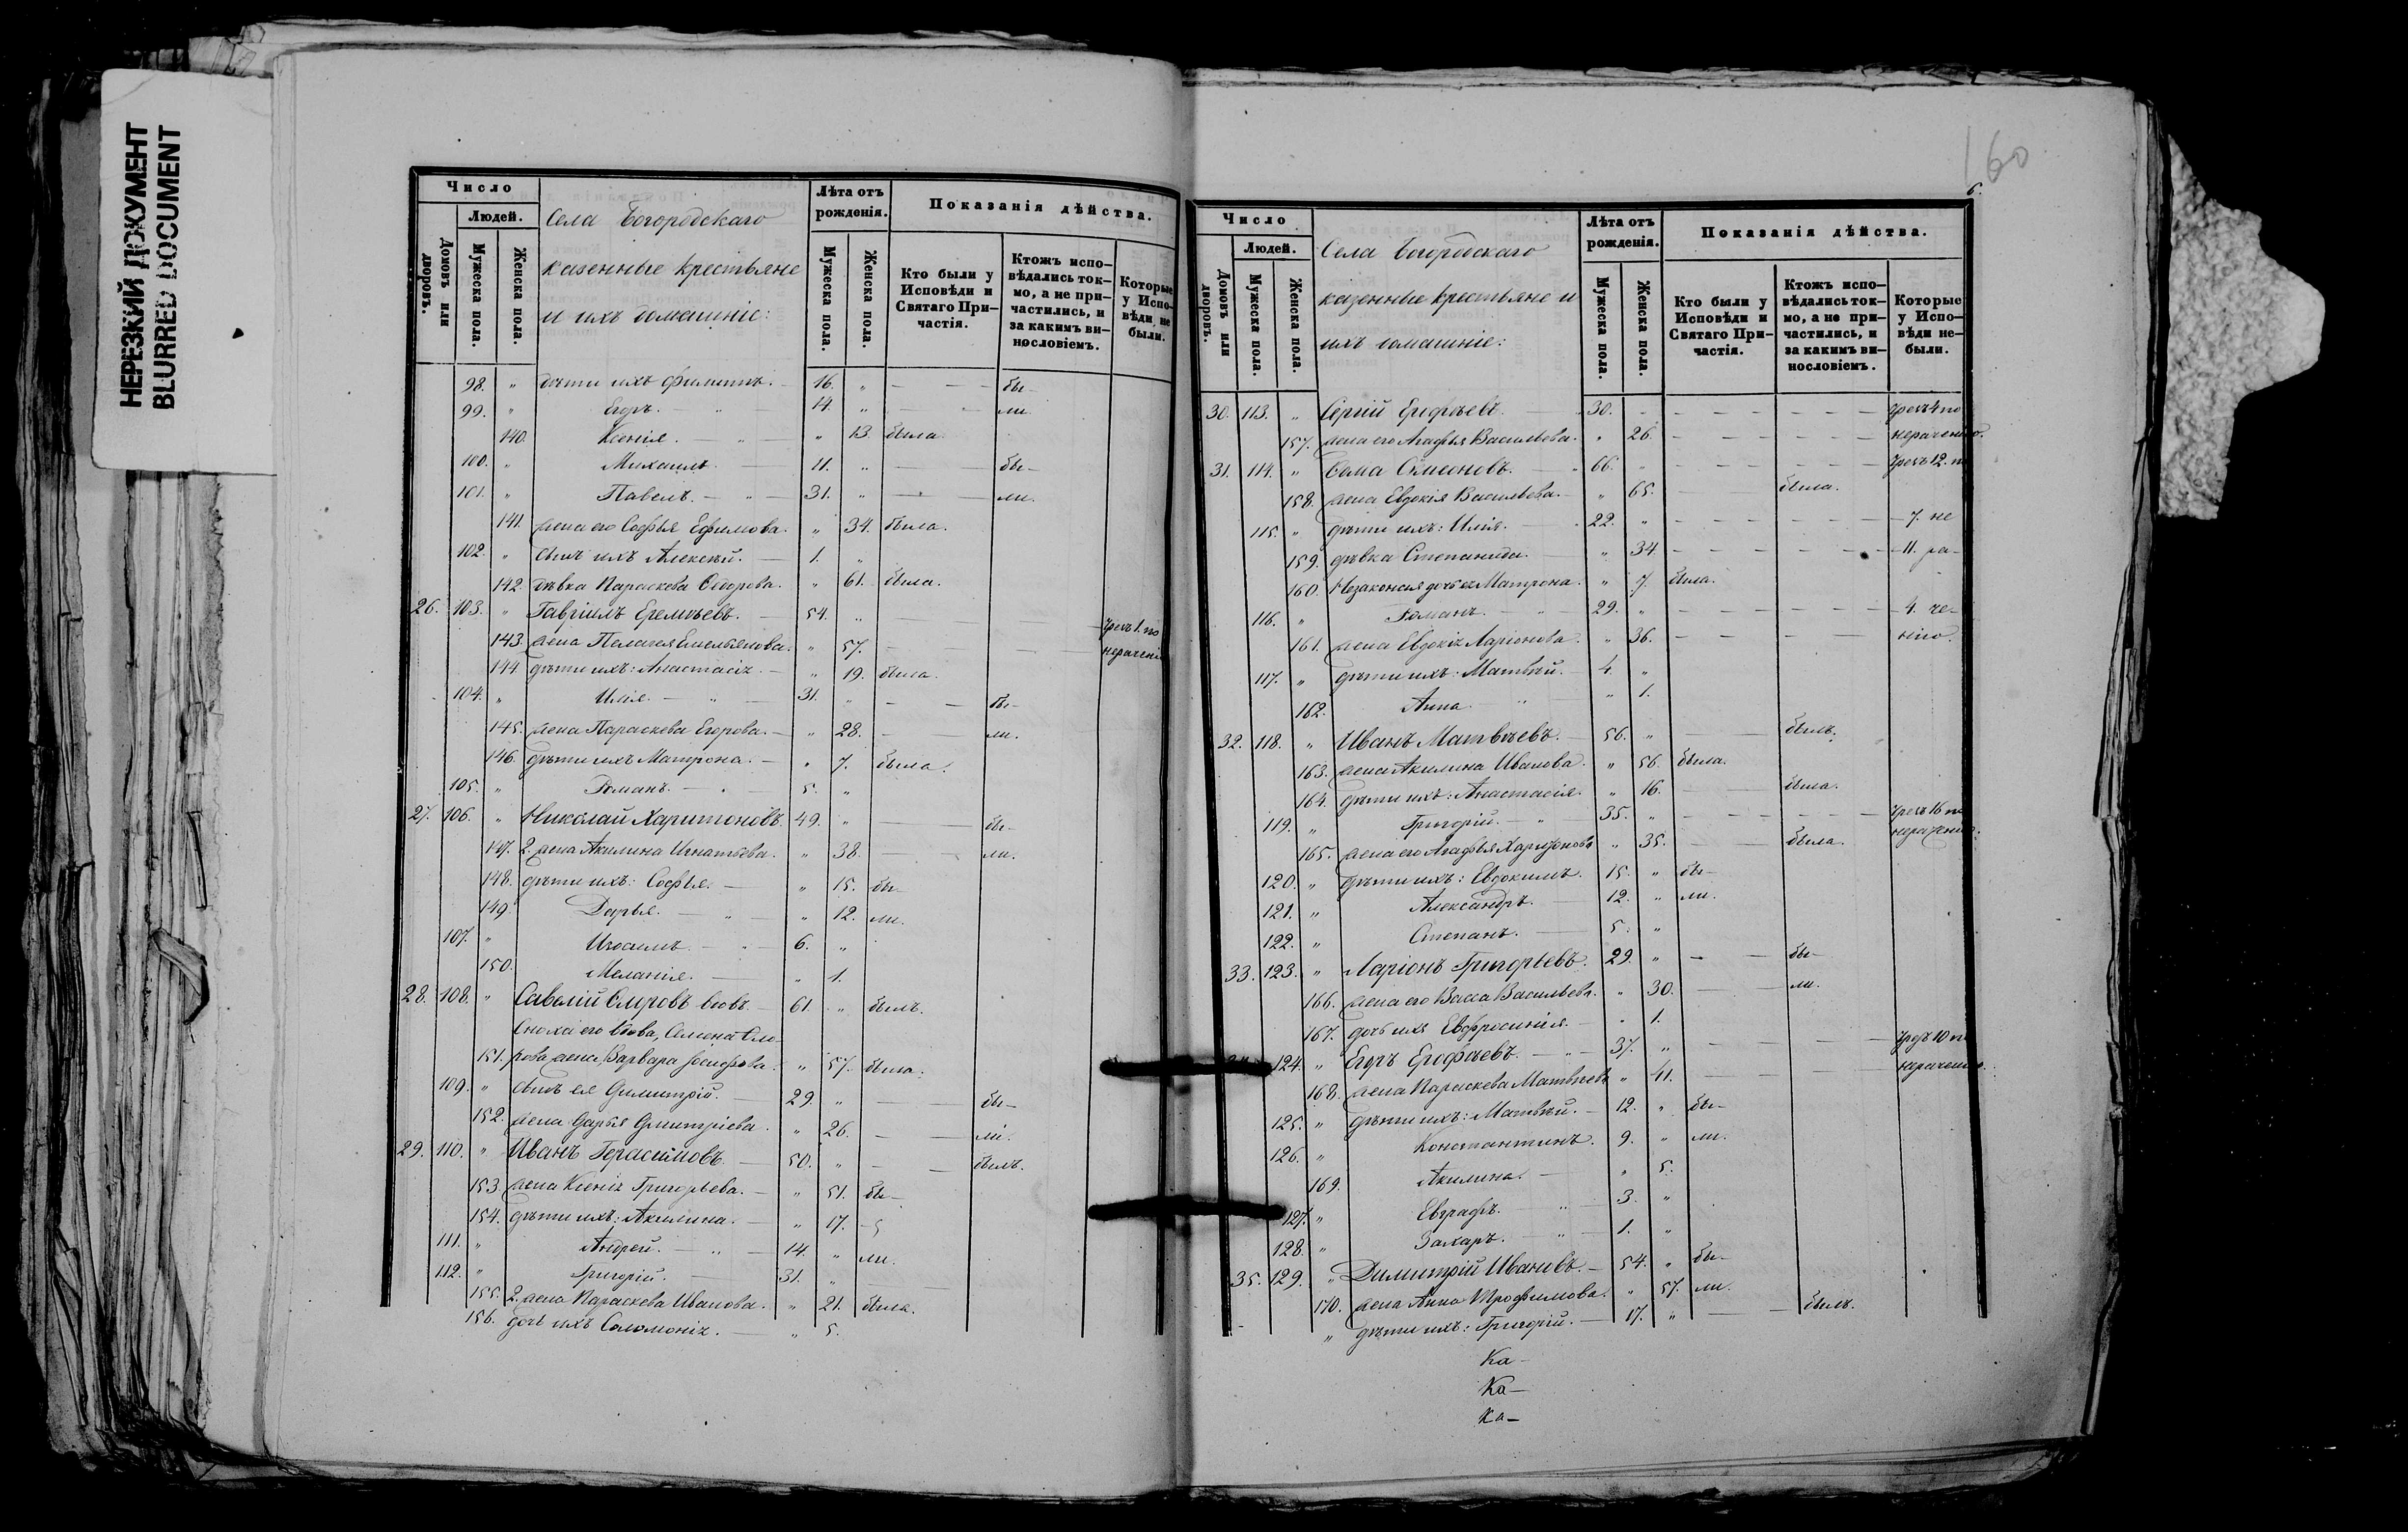 НЕРЕЗКИЙ ДОКУМЕНТ
BLURRED DOCUMENT
Число
Людей.
Домовъ или дворовъ.
Мужеска пола.
Женска пола.
Села Богородскаго
казенные крестьяне
и ихъ домашніе:
Лѣта отъ рожденія.
Мужеска пола.
Женска пола.
Показанія дѣйства.
Кто были у Исповѣди и Святаго При-частія.
Ктожъ испо-вѣдались ток-мо, а не при-частились, и за какимъ ви-нословіемъ.
Которые у Испо-вѣди не были.
98. " дѣти ихъ Филиппъ. 16. " — — бы-
99. " Егоръ. — " 14. " — — ли.
140. Ксенія. — " — " 13. была.
100. " Михаилъ. — 11. " — — бы-
101. " Павелъ. — " — 31. " — — ли.
141. жена его Софья Ефимова. " 34. была.
102. " сынъ ихъ Алексѣй. — 1. "
142. дѣвка Параскева Ѳедорова. " 61. была.
26. 103. " Гавріилъ Еремѣевъ. — 54. " — — — грехъ 1. по
143. жена Пелагея Емельянова. " 57. — — нерачені
144. дѣти ихъ: Анастасія. — " 19. была.
104. " Илія. — " — 31. " — — бы-
145. жена Параскева Егорова. — " 28. — ли.
146. дѣти ихъ Матрона. — " 7. была.
105. " Романъ. — " 5. "
27. 106. " Николай Харитоновъ. 49. " — — бы-
147. 2. жена Акилина Игнатьева. " 38. — ли.
148. дѣти ихъ: Софья. — " 15. бы-
149. Дарья. — " " 12. ли.
107. " — " — 6. "
150. Меланія. — " 1.
28. 108. " Савелій вдовъ. — 61. " былъ.
Сноха его вдова, Семена
151. жена, Варвара Іосифова. " 57. была.
109. " сынъ ея Димитрій. — 29. " — — бы-
152. жена Дарья Димитріева. " 26. — — ли.
29. 110. " Иванъ Герасимовъ — 50. " — — былъ.
153. жена Ксенія Григорьева. — " 51. бы-
154. дѣти ихъ: Акилина. — " 17. —
111. " Андрей. — " — 14. " ли.
112. " Григорій. — 31. " —
155. 2. жена Параскева Иванова. " 21. была.
156. дочь ихъ Соломонія. — " 5.
160
6.
Число
Людей.
Домовъ или дворовъ.
Мужеска пола.
Женска пола.
Села Богородскаго
казенные крестьяне и
ихъ домашніе:
Лѣта отъ рожденія.
Мужеска пола.
Женска пола.
Показанія дѣйства.
Кто были у Исповѣди и Святаго При-частія.
Ктожъ испо-вѣдались ток-мо, а не при-частились, и за какимъ ви-нословіемъ.
Которые у Испо-вѣди не-были.
30. 113. " Сергій Ерофѣевъ. — 30. — — — — грехъ 4 по
157. жена его Агафья Васильева. " 26. — — — — нерачению.
31. 114. " Ѳома Симеоновъ. — 66. " — — — — грехъ 12. по
158. жена Евдокія Васильева. — " 65. — была.
115. " дѣти ихъ: Илія. — 22. " — — — — 7. не
159. дѣвка Степанида. — " 34. — — — — 11. ра-
160. Незаконная дочь ея Матрона. " 7. была.
116. " Романъ. — " — 29. " — — — — 4. че-
161. жена Евдокія Ларіонова. " 36. — — — — нію.
117. " дѣти ихъ: Матвѣй. — 4. "
162. Анна. — " — " 1.
32. 118. " Иванъ Матвѣевъ. — 56. " — — былъ.
163. жена Акилина Иванова. " 56. была.
164. дѣти ихъ: Анастасія. " 16. — — была.
119. " Григорій. — " 35. " — — — — грехъ 16 по
165. жена его Агафья Харитонова " 35. — — была. нерачению.
120. " дѣти ихъ: Евдокимъ. 15. " бы-
121. " Александръ. — 12. " ли.
122. " Степанъ. — 5. "
33. 123. " Ларіонъ Григорьевъ. 29. " — — бы-
166. жена его Васса Васильева. " 30. — — ли.
167. дочь ихъ Евфросинія. — " 1.
124. " Егоръ Ерофѣевъ. — " — 37. " — — — грехъ 10 по
168. жена Параскева Матвѣева " 41. — — — нерачению.
125. " дѣти ихъ: Матвѣй. — 12. " бы-
126. " Константинъ. 9. " ли.
169. Акилина. — " 5.
127. " Евграфъ. — " — 3. "
128. " Захаръ. — " — 1. "
35. 129. " Димитрій Ивановъ. — 54. " бы-
170. жена Анна Трофимова. " 57. ли.
" дѣти ихъ: Григорій. — 17. " — — былъ.
Ка-
Ка-
Ка-